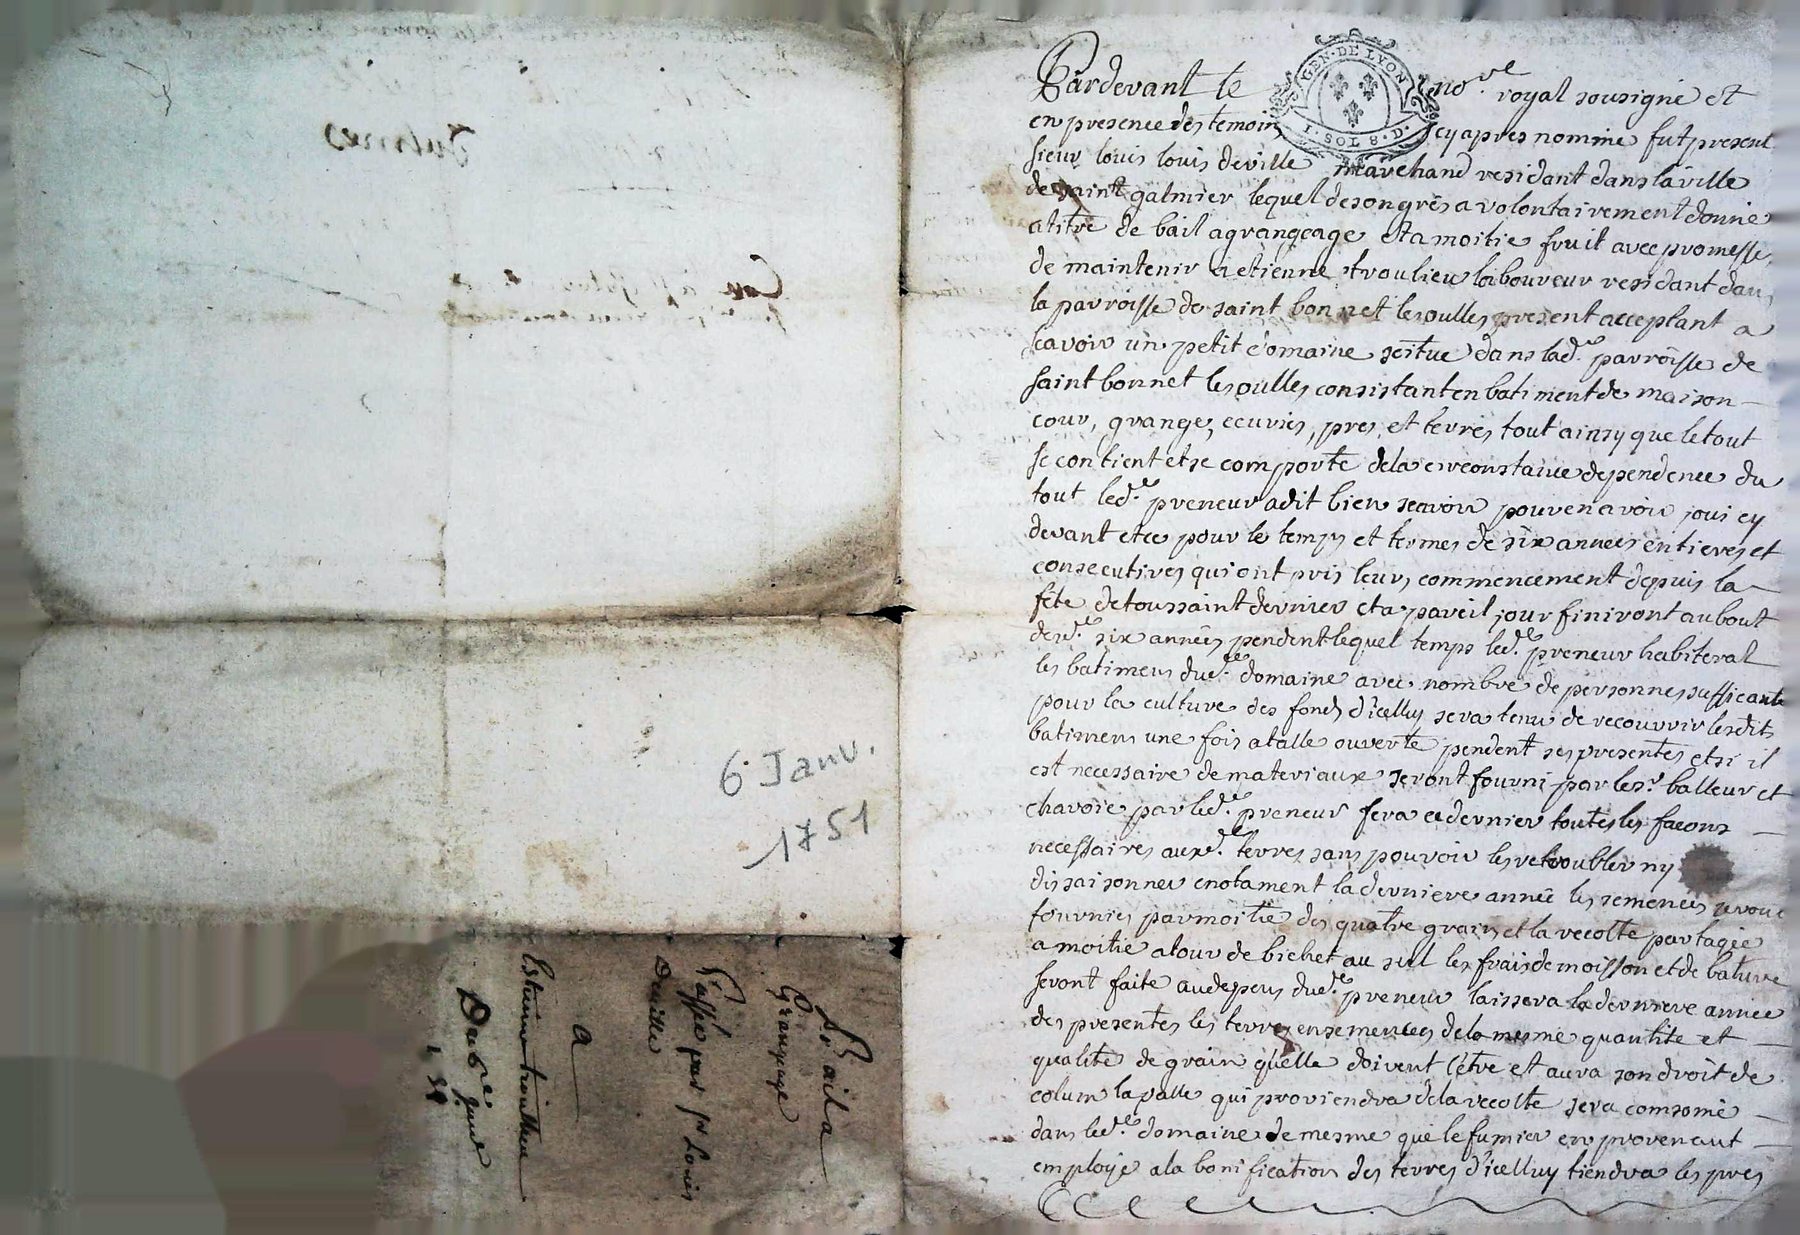 6 Janv.
1751
Bail a
Grangeage
Passé par Sr Louis
Deville
a
Estienne troullieu
Du 6e janv
1751
GEN. DE LYON
1. SOL 8. D.
Pardevant le nore royal sousigné et
en presence des temoin cy apres nomme fut present
sieur louis louis deville marchand residant dans la ville
de saint galmier lequel de son grés a volontairement donné
a titre de bail a grangeage et a moitie fruit avec promesse
de maintenir a etienne troulieu laboureur residant dans
la parroisse de saint bonnet les oulles present acceptant a
scavoir un petit domaine scitue dans lade parroisse de
saint bonnet les oulles consistant en batiment de maison
cour, grange, ecuries, pres, et terres, tout ainsy que le tout
se contient et se comporte de la circonstance dependence du
tout lede preneur a dit bien scavoir pour en avoir joui cy
devant et ce pour le temps et termes de six années entieres et
consecutives qui ont pris leurs commencement depuis la
fête de toussaint dernier et a pareil jour finiront au bout
desde six années pendent lequel temps lede preneur habiteral
les batimens dude domaine avec nombre de personnes sufficante
pour la culture des fonds d'icelluy sera tenu de recouvrir lesdit
batimens une fois a talle ouverte pendent ses presentes et si il
est necessaire de materiaux seront fourni par le sr balleur et
charoié par lede preneur fera ce dernier toutes les facons
necessaires auxde terres sans pouvoir les retroubler ny
dissaisonner enotament la derniere année les semences seront
fournies par moitie des quatre grains et la recolte partagée
a moitie a tour de bichet au siil les frais de moisson et de bature
seront faite au depens dude preneur laissera la derniere année
des presentes les terres ensemencées de la mesme quantite et
qualite de grain qu'elle doivent l'être et aura son droit de
colum la palle qui proviendra de la recolte sera comsomé
dans lede domaine de mesme que le fumier en provenant
employé a la bonification des terres d'icelluy tiendra les pres